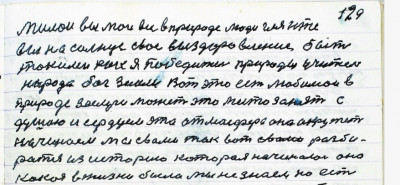 129
милои вы мои вы в природе люди гляньте
вы на солнце свое выздоровление, быть
такими как я победити природы учител
народа бог земли Вот это есть любимои в
природе заслуги может это мито занят с
душою и сердцем эта атмасфера она окружит
начинаем мы свами так вот свами разби-
ратся из историю которая началась она
какая в жизни была мы не знаем но ест